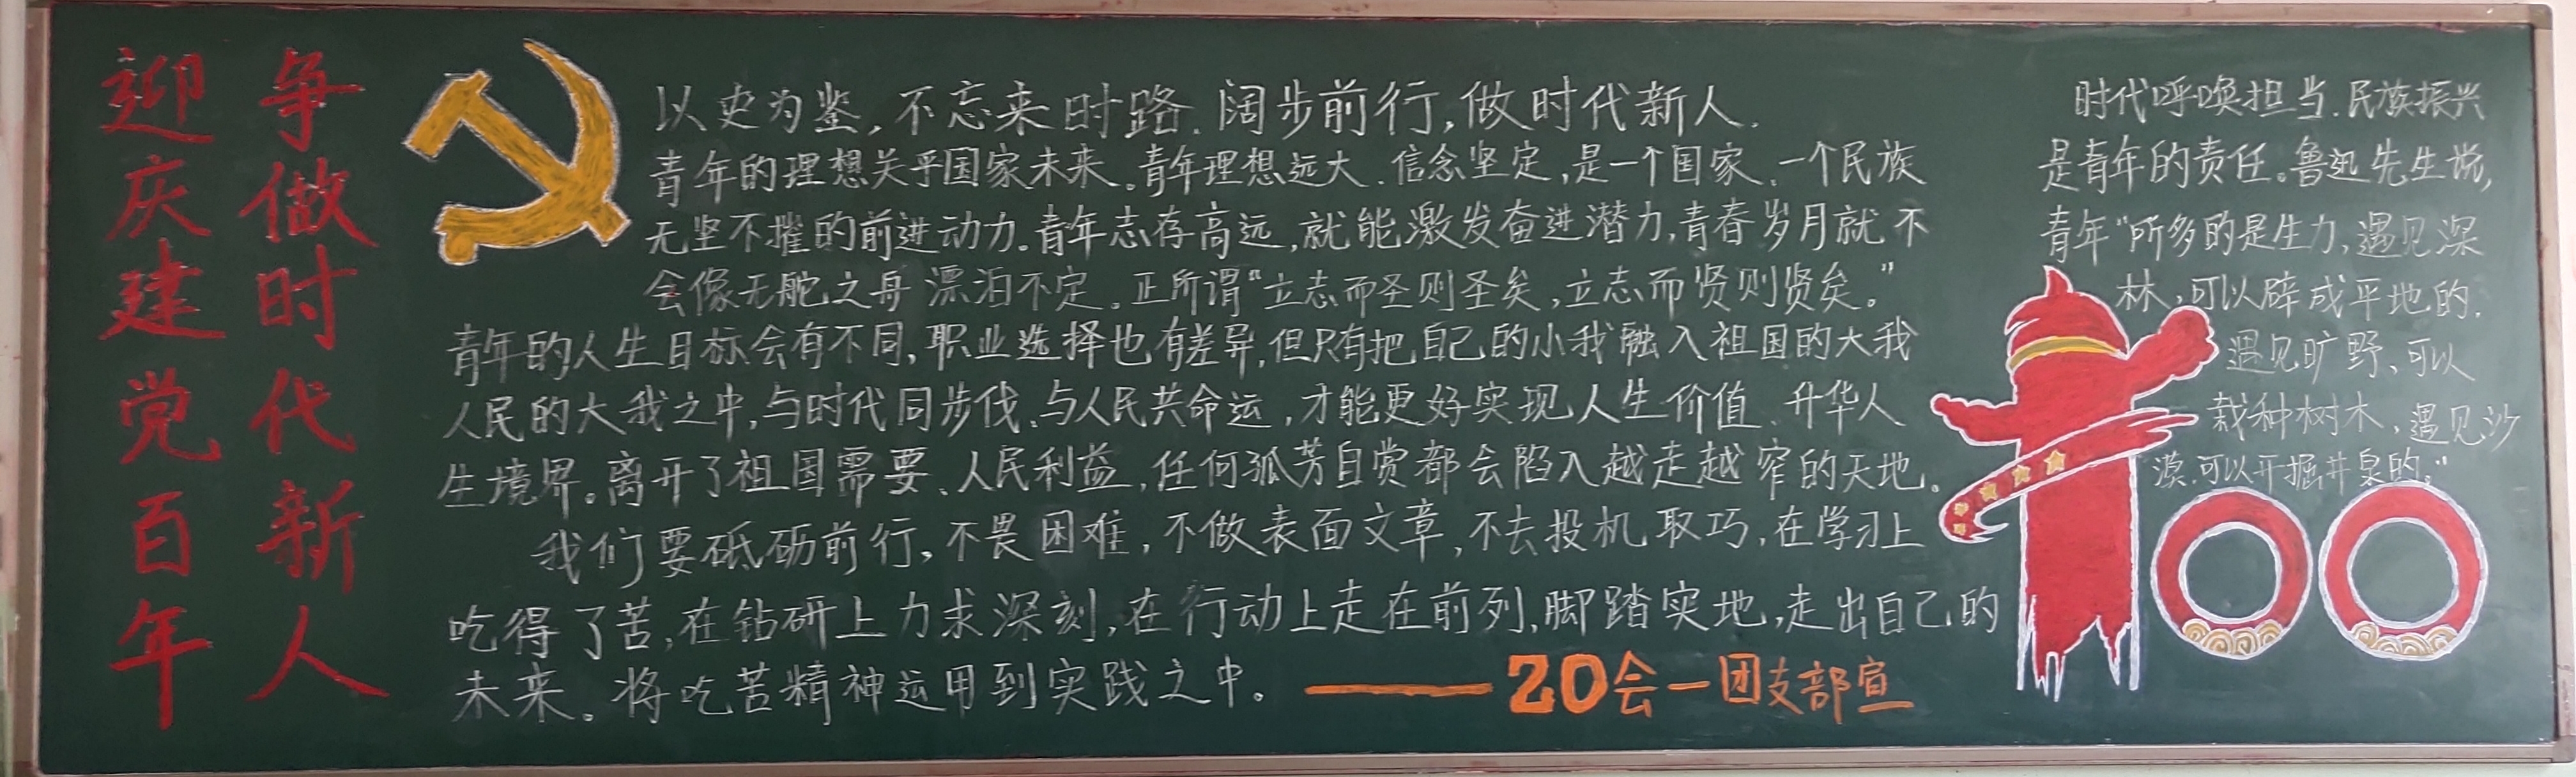 迎庆建党百年
争做时代新人
以史为鉴,不忘来时路.阔步前行,做时代新人.
青年的理想关乎国家未来。青年理想远大、信念坚定,是一个国家、一个民族
无坚不摧的前进动力。青年志存高远,就能激发奋进潜力,青春岁月就不
会像无舵之舟漂泊不定。正所谓“立志而圣则圣矣,立志而贤则贤矣。”
青年的人生目标会有不同,职业选择也有差异,但只有把自己的小我融入祖国的大我
人民的大我之中,与时代同步伐、与人民共命运,才能更好实现人生价值、升华人
生境界。离开了祖国需要、人民利益,任何孤芳自赏都会陷入越走越窄的天地。
我们要砥砺前行,不畏困难,不做表面文章,不去投机取巧,在学习上
吃得了苦,在钻研上力求深刻,在行动上走在前列,脚踏实地,走出自己的
未来。将吃苦精神运用到实践之中。
——20会一团支部宣
时代呼唤担当.民族振兴
是青年的责任。鲁迅先生说,
青年“所多的是生力,遇见深
林,可以辟成平地的.
遇见旷野、可以
栽种树木,遇见沙
漠.可以开掘井泉的。”
100